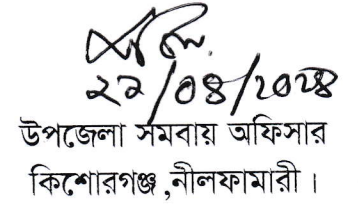 ২২/০৪/২০২৪
উপজেলা সমবায় অফিসার
কিশোরগঞ্জ ,নীলফামারী ।